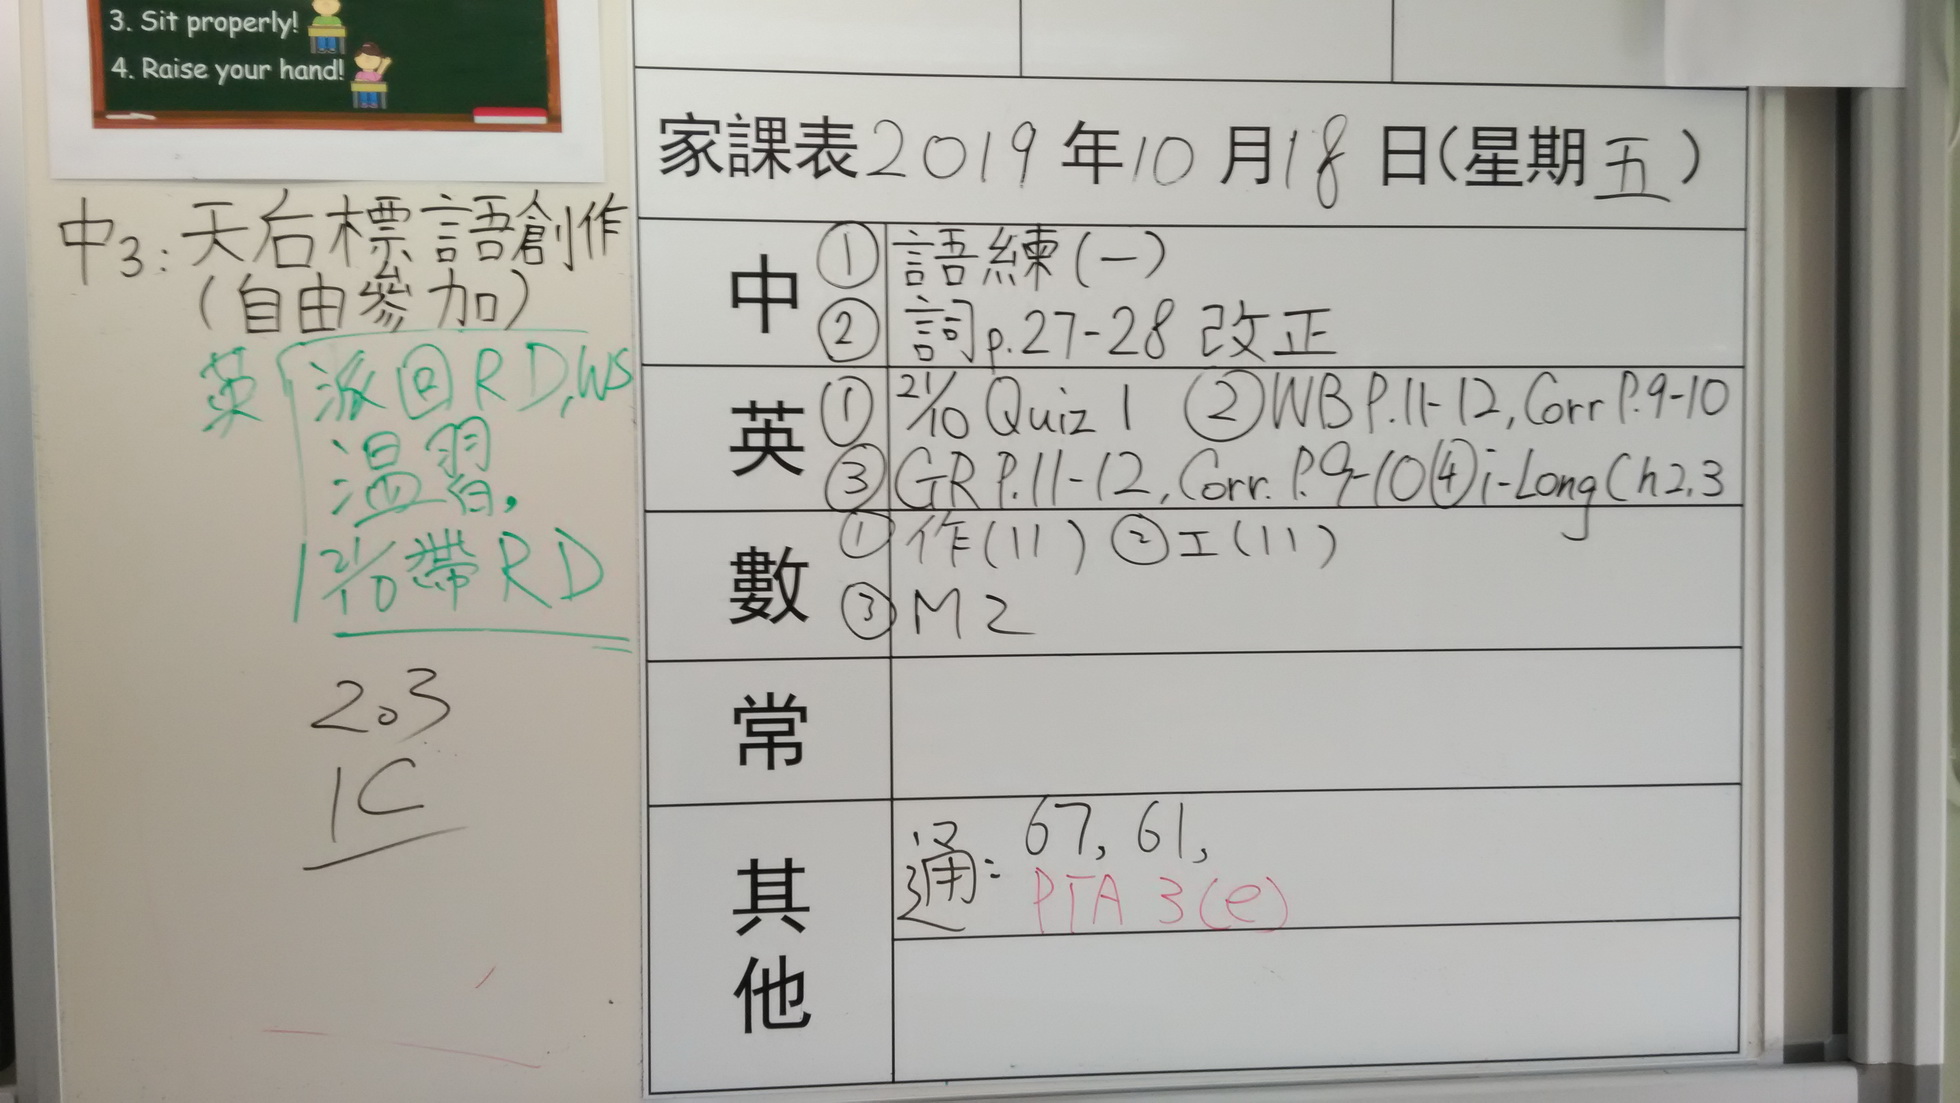 3. Sit properly!
4. Raise your hand!
中3: 天后標語創作
(自由參加)
英 派回RD,WS
溫習,
21/10帶RD
203
1C
家課表2019年10月18日(星期五)
中 ① 語練(一)
② 詞p.27-28 改正
英 ① 21/10 Quiz 1 ② WB P.11-12, Corr P.9-10
③ GR P.11-12, Corr. P.9-10 ④ i-Long Ch2,3
數 ① 作(11) ② 工(11)
③ M2
常
其他 通: 67, 61,
PTA 3(e)